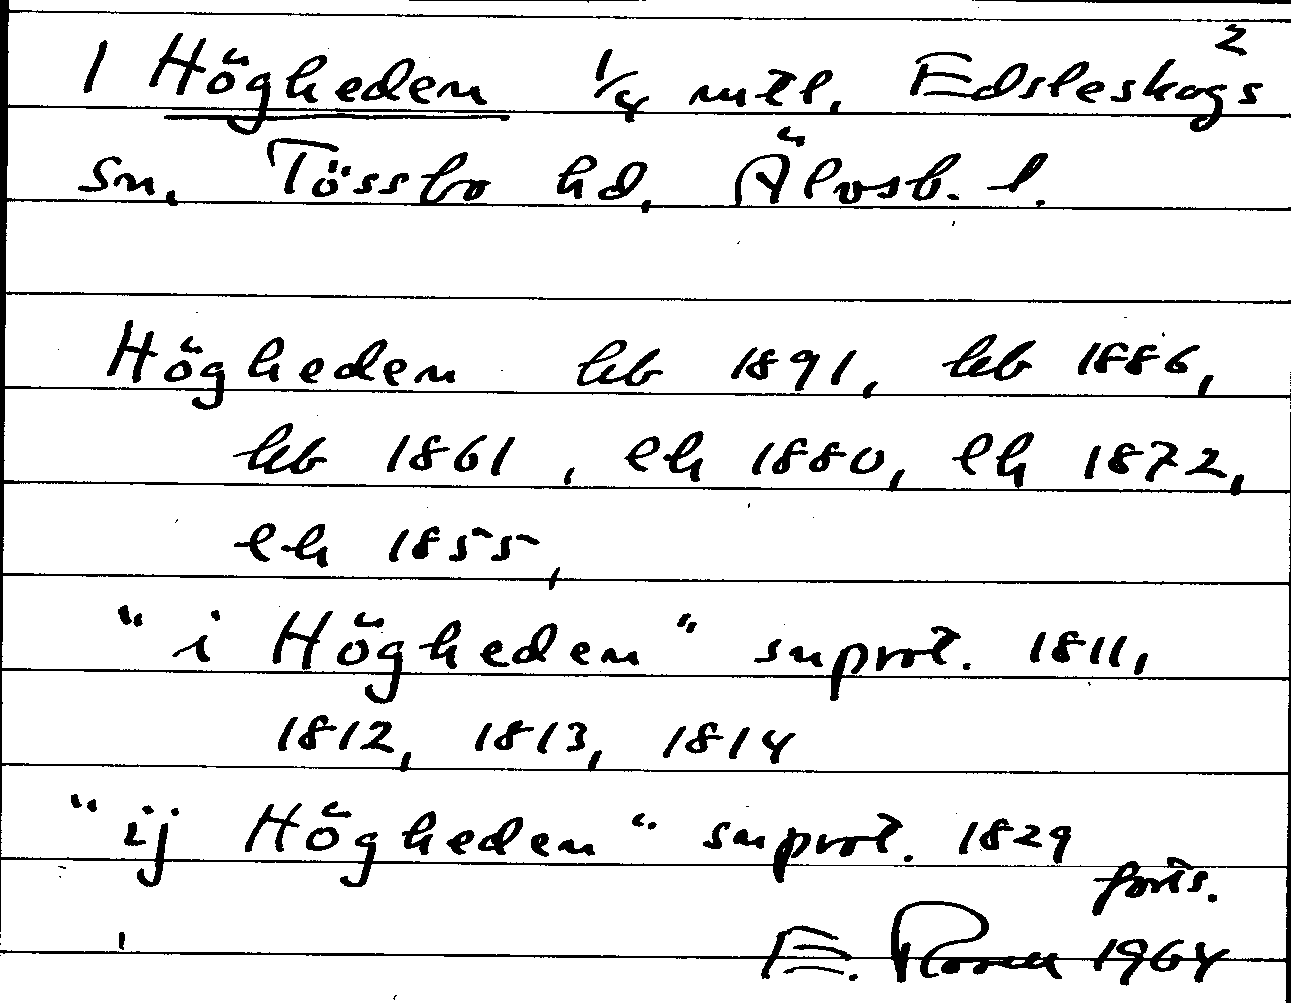 2
1 Högheden 1/4 mtl. Edsleskogs
sn. Tössbo hd. Älvsb. l.
Högheden hb 1891, hb 1886,
hb 1861, eh 1880, eh 1872,
eh 1855,
"i Högheden" snprot. 1811,
1812, 1813, 1814
"ij Högheden" snprot. 1829
forts.
E. 1964